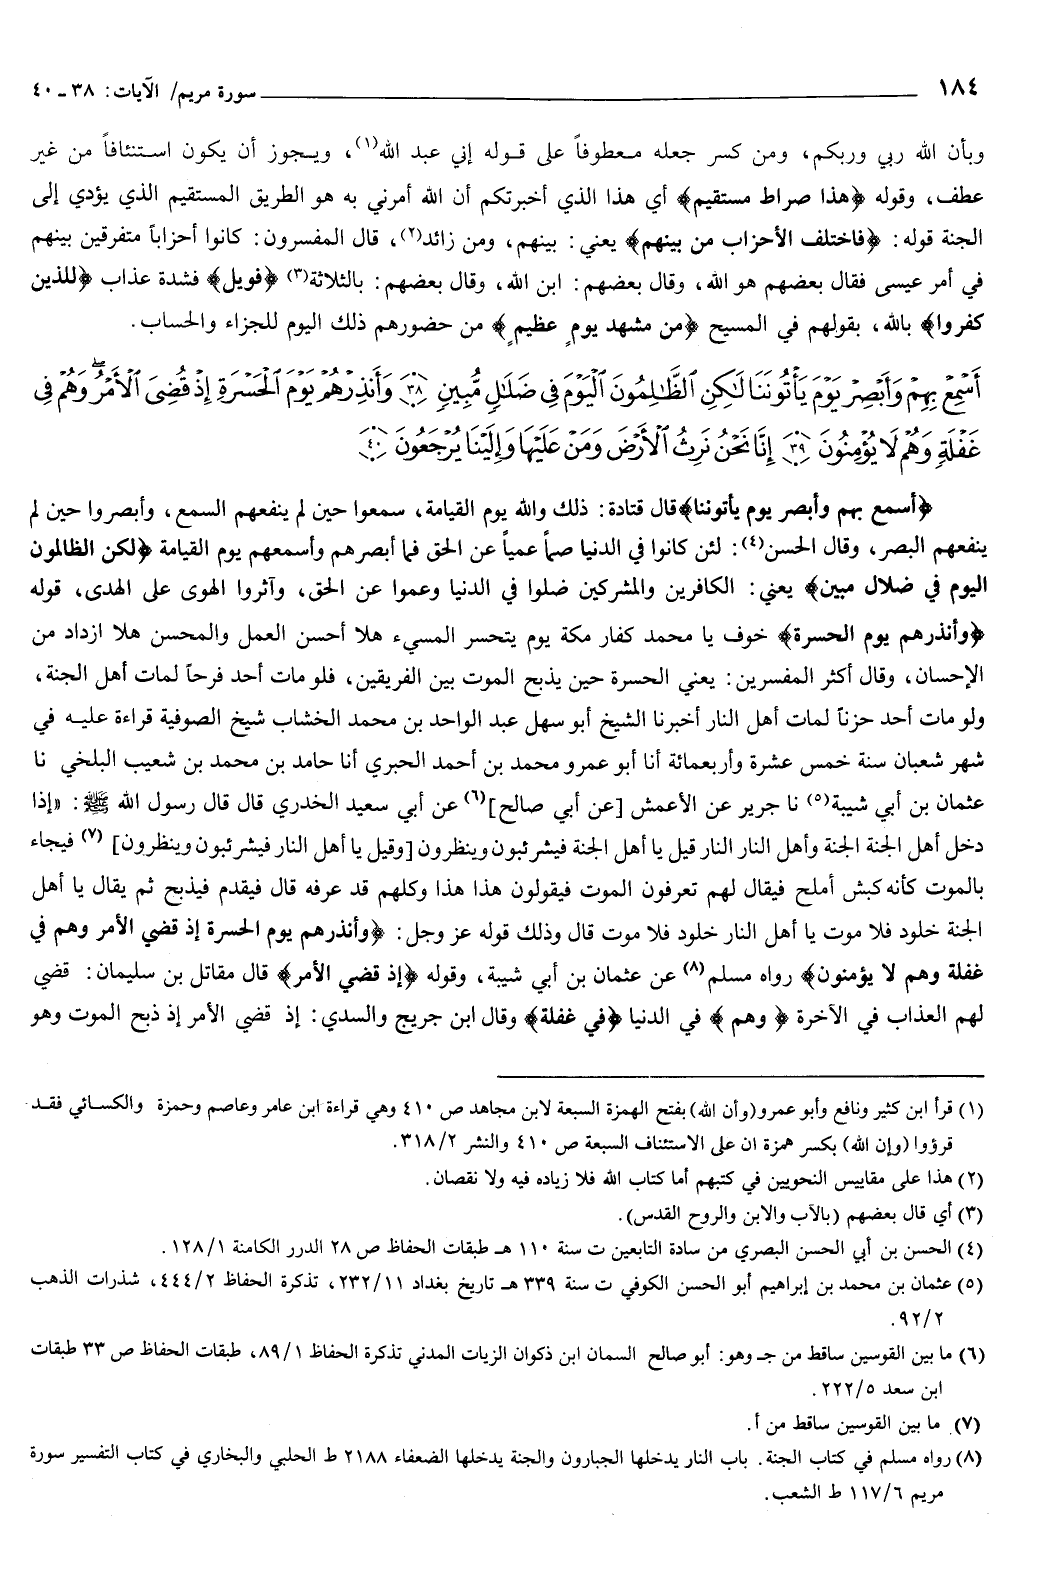 ١٨٤ سورة مريم/ الآيات: ٣٨ - ٤٠
وبأن الله ربي وربكم، ومن كسر جعله معطوفاً على قوله إني عبد الله(١)، ويجوز أن يكون استئنافاً من غير
عطف، وقوله ﴿هذا صراط مستقيم﴾ أي هذا الذي أخبرتكم أن الله أمرني به هو الطريق المستقيم الذي يؤدي إلى
الجنة قوله: ﴿فاختلف الأحزاب من بينهم﴾ يعني: بينهم، ومن زائد(٢)، قال المفسرون: كانوا أحزاباً متفرقين بينهم
في أمر عيسى فقال بعضهم هو الله، وقال بعضهم: ابن الله، وقال بعضهم: بالثلاثة(٣) ﴿فويل﴾ فشدة عذاب ﴿للذين
كفروا﴾ بالله، بقولهم في المسيح ﴿من مشهد يومٍ عظيمٍ﴾ من حضورهم ذلك اليوم للجزاء والحساب.
أَسْمِعْ بِهِمْ وَأَبْصِرْ يَوْمَ يَأْتُونَنَا لَٰكِنِ ٱلظَّٰلِمُونَ ٱلْيَوْمَ فِى ضَلَٰلٍ مُّبِينٍ ۝٣٨ وَأَنذِرْهُمْ يَوْمَ ٱلْحَسْرَةِ إِذْ قُضِىَ ٱلْأَمْرُ ۖ وَهُمْ فِى
غَفْلَةٍ وَهُمْ لَا يُؤْمِنُونَ ۝٣٩ إِنَّا نَحْنُ نَرِثُ ٱلْأَرْضَ وَمَنْ عَلَيْهَا وَإِلَيْنَا يُرْجَعُونَ ۝٤٠
﴿أسمع بهم وأبصر يوم يأتوننا﴾قال قتادة: ذلك والله يوم القيامة، سمعوا حين لم ينفعهم السمع، وأبصروا حين لم
ينفعهم البصر، وقال الحسن(٤): لئن كانوا في الدنيا صماً عمياً عن الحق فما أبصرهم وأسمعهم يوم القيامة ﴿لكن الظالمون
اليوم في ضلال مبين﴾ يعني: الكافرين والمشركين ضلوا في الدنيا وعموا عن الحق، وآثروا الهوى على الهدى، قوله
﴿وأنذرهم يوم الحسرة﴾ خوف يا محمد كفار مكة يوم يتحسر المسيء هلا أحسن العمل والمحسن هلا ازداد من
الإحسان، وقال أكثر المفسرين: يعني الحسرة حين يذبح الموت بين الفريقين، فلو مات أحد فرحاً لمات أهل الجنة،
ولو مات أحد حزناً لمات أهل النار أخبرنا الشيخ أبو سهل عبد الواحد بن محمد الخشاب شيخ الصوفية قراءة عليه في
شهر شعبان سنة خمس عشرة وأربعمائة أنا أبو عمرو محمد بن أحمد الحبري أنا حامد بن محمد بن شعيب البلخي نا
عثمان بن أبي شيبة(٥) نا جرير عن الأعمش [عن أبي صالح](٦) عن أبي سعيد الخدري قال قال رسول الله ﷺ: «إذا
دخل أهل الجنة الجنة وأهل النار النار قيل يا أهل الجنة فيشرئبون وينظرون [وقيل يا أهل النار فيشرئبون وينظرون] (٧) فيجاء
بالموت كأنه كبش أملح فيقال لهم تعرفون الموت فيقولون هذا هذا وكلهم قد عرفه قال فيقدم فيذبح ثم يقال يا أهل
الجنة خلود فلا موت يا أهل النار خلود فلا موت قال وذلك قوله عز وجل: ﴿وأنذرهم يوم الحسرة إذ قضي الأمر وهم في
غفلة وهم لا يؤمنون﴾ رواه مسلم(٨) عن عثمان بن أبي شيبة، وقوله ﴿إذ قضي الأمر﴾ قال مقاتل بن سليمان: قضي
لهم العذاب في الآخرة ﴿ وهم ﴾ في الدنيا ﴿في غفلة﴾ وقال ابن جريج والسدي: إذ قضي الأمر إذ ذبح الموت وهو
(١) قرأ ابن كثير ونافع وأبو عمرو(وأن الله) بفتح الهمزة السبعة لابن مجاهد ص ٤١٠ وهي قراءة ابن عامر وعاصم وحمزة والكسائي فقد
قرؤوا (وإن الله) بكسر همزة ان على الاستئناف السبعة ص ٤١٠ والنشر ٣١٨/٢.
(٢) هذا على مقاييس النحويين في كتبهم أما كتاب الله فلا زياده فيه ولا نقصان.
(٣) أي قال بعضهم (بالآب والابن والروح القدس).
(٤) الحسن بن أبي الحسن البصري من سادة التابعين ت سنة ١١٠ هـ طبقات الحفاظ ص ٢٨ الدرر الكامنة ١٢٨/١.
(٥) عثمان بن محمد بن إبراهيم أبو الحسن الكوفي ت سنة ٣٣٩ هـ تاريخ بغداد ٢٣٢/١١، تذكرة الحفاظ ٤٤٤/٢، شذرات الذهب
٩٢/٢.
(٦) ما بين القوسين ساقط من جـ وهو: أبو صالح السمان ابن ذكوان الزيات المدني تذكرة الحفاظ ٨٩/١، طبقات الحفاظ ص ٣٣ طبقات
ابن سعد ٢٢٢/٥.
(٧) ما بين القوسين ساقط من أ.
(٨) رواه مسلم في كتاب الجنة. باب النار يدخلها الجبارون والجنة يدخلها الضعفاء ٢١٨٨ ط الحلبي والبخاري في كتاب التفسير سورة
مريم ١١٧/٦ ط الشعب.